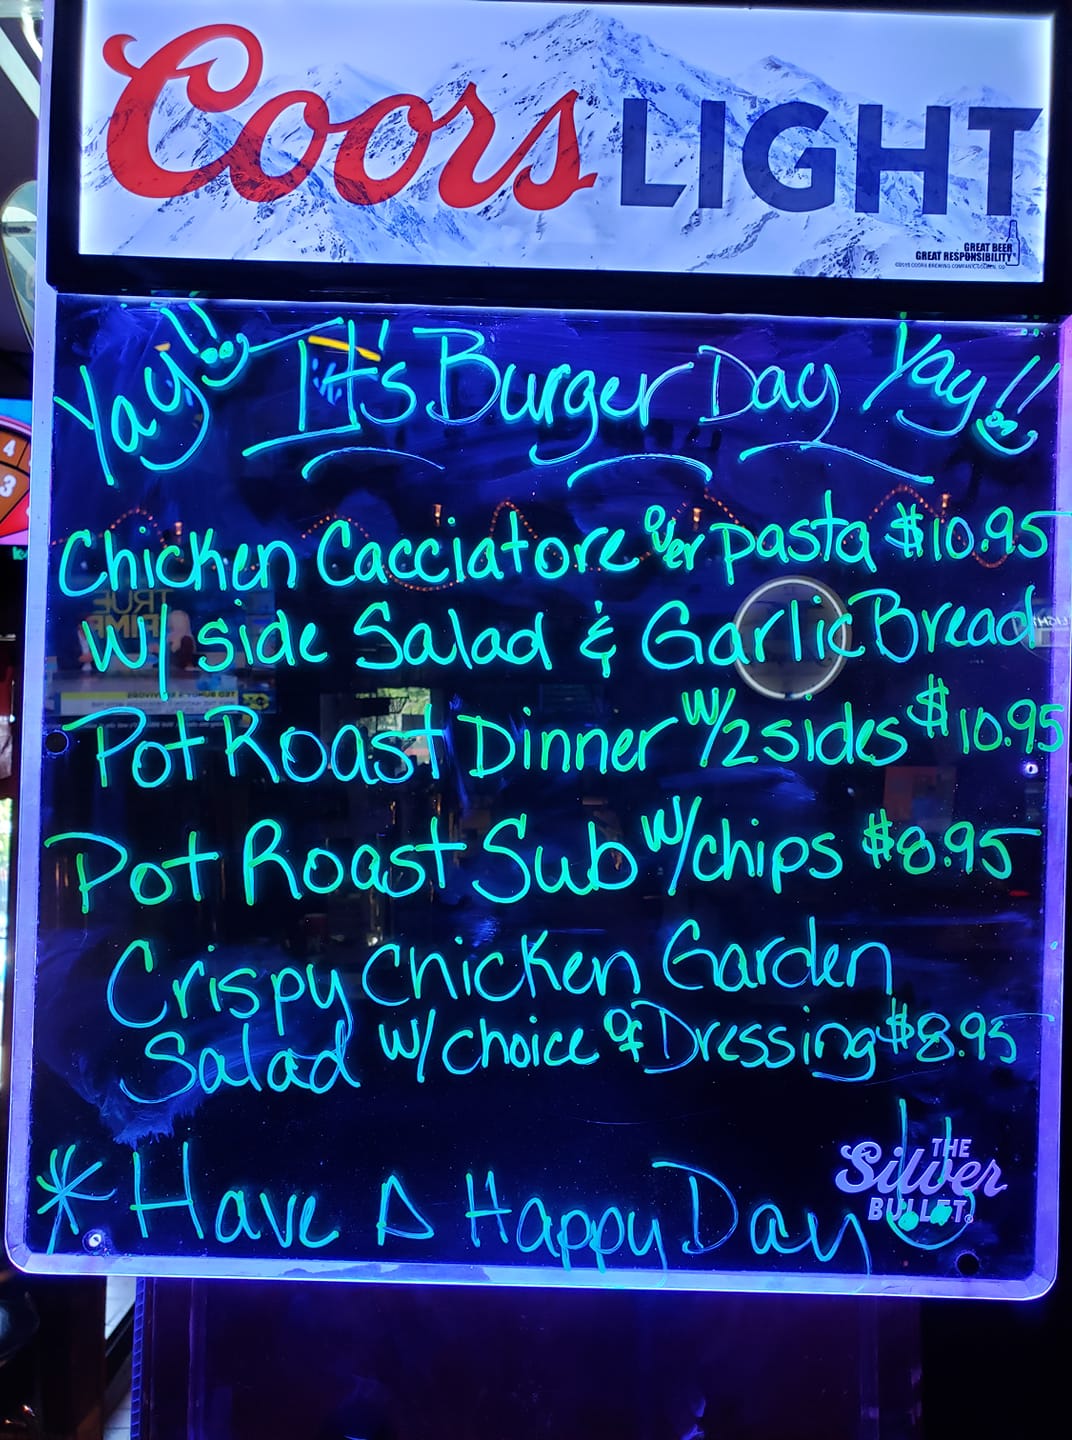 Coors LIGHT
GREAT BEER
GREAT RESPONSIBILITY
Yay!! It's Burger Day Yay!!
Chicken Cacciatore over pasta $10.95
w/ side Salad & Garlic Bread
Pot Roast Dinner w/2 sides $10.95
Pot Roast Sub w/chips $8.95
Crispy Chicken Garden
Salad w/choice of Dressing $8.95
THE
Silver
BULLET®
* Have A Happy Day!!